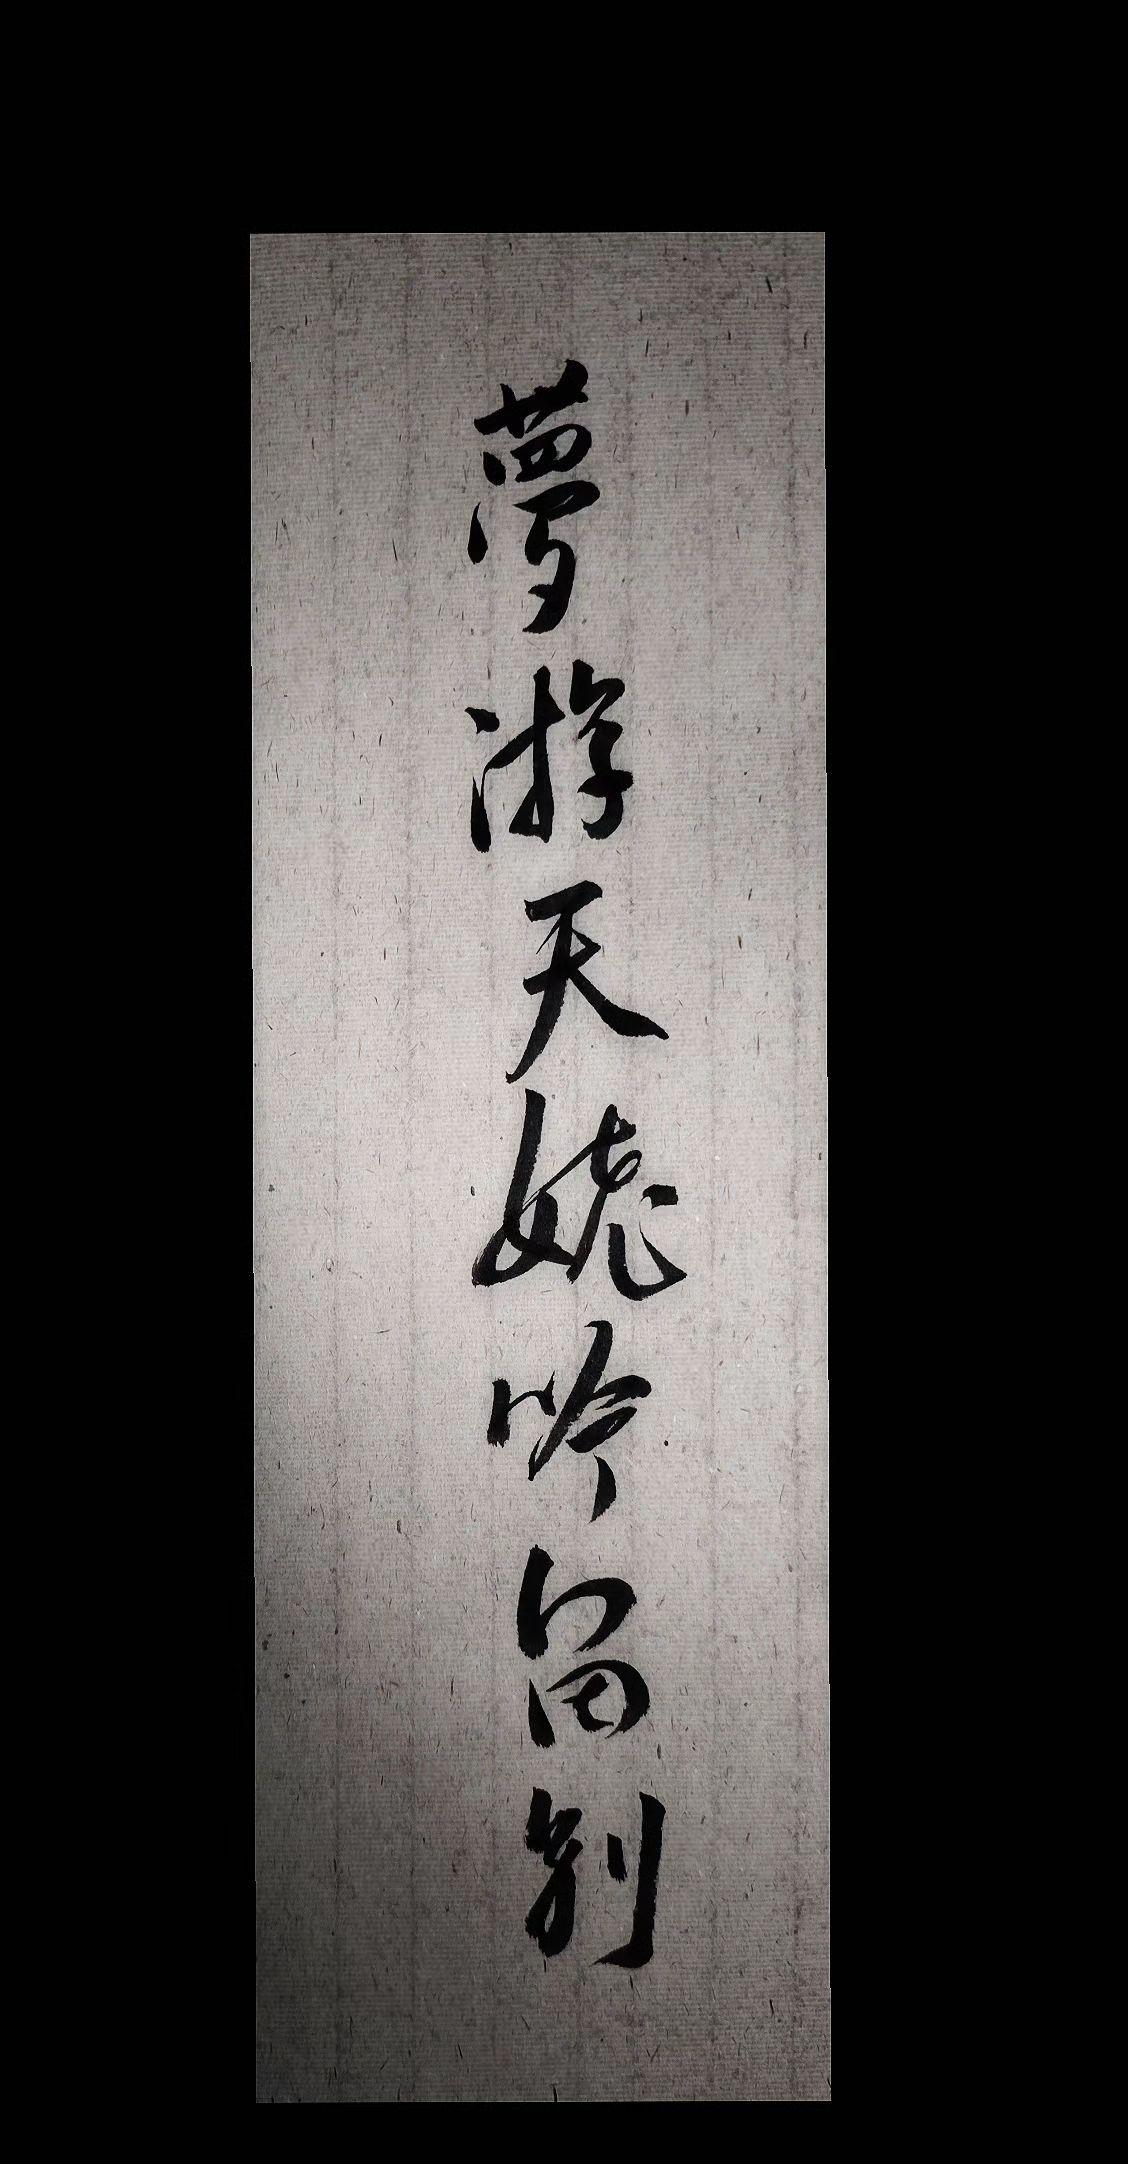 夢游天姥吟留别